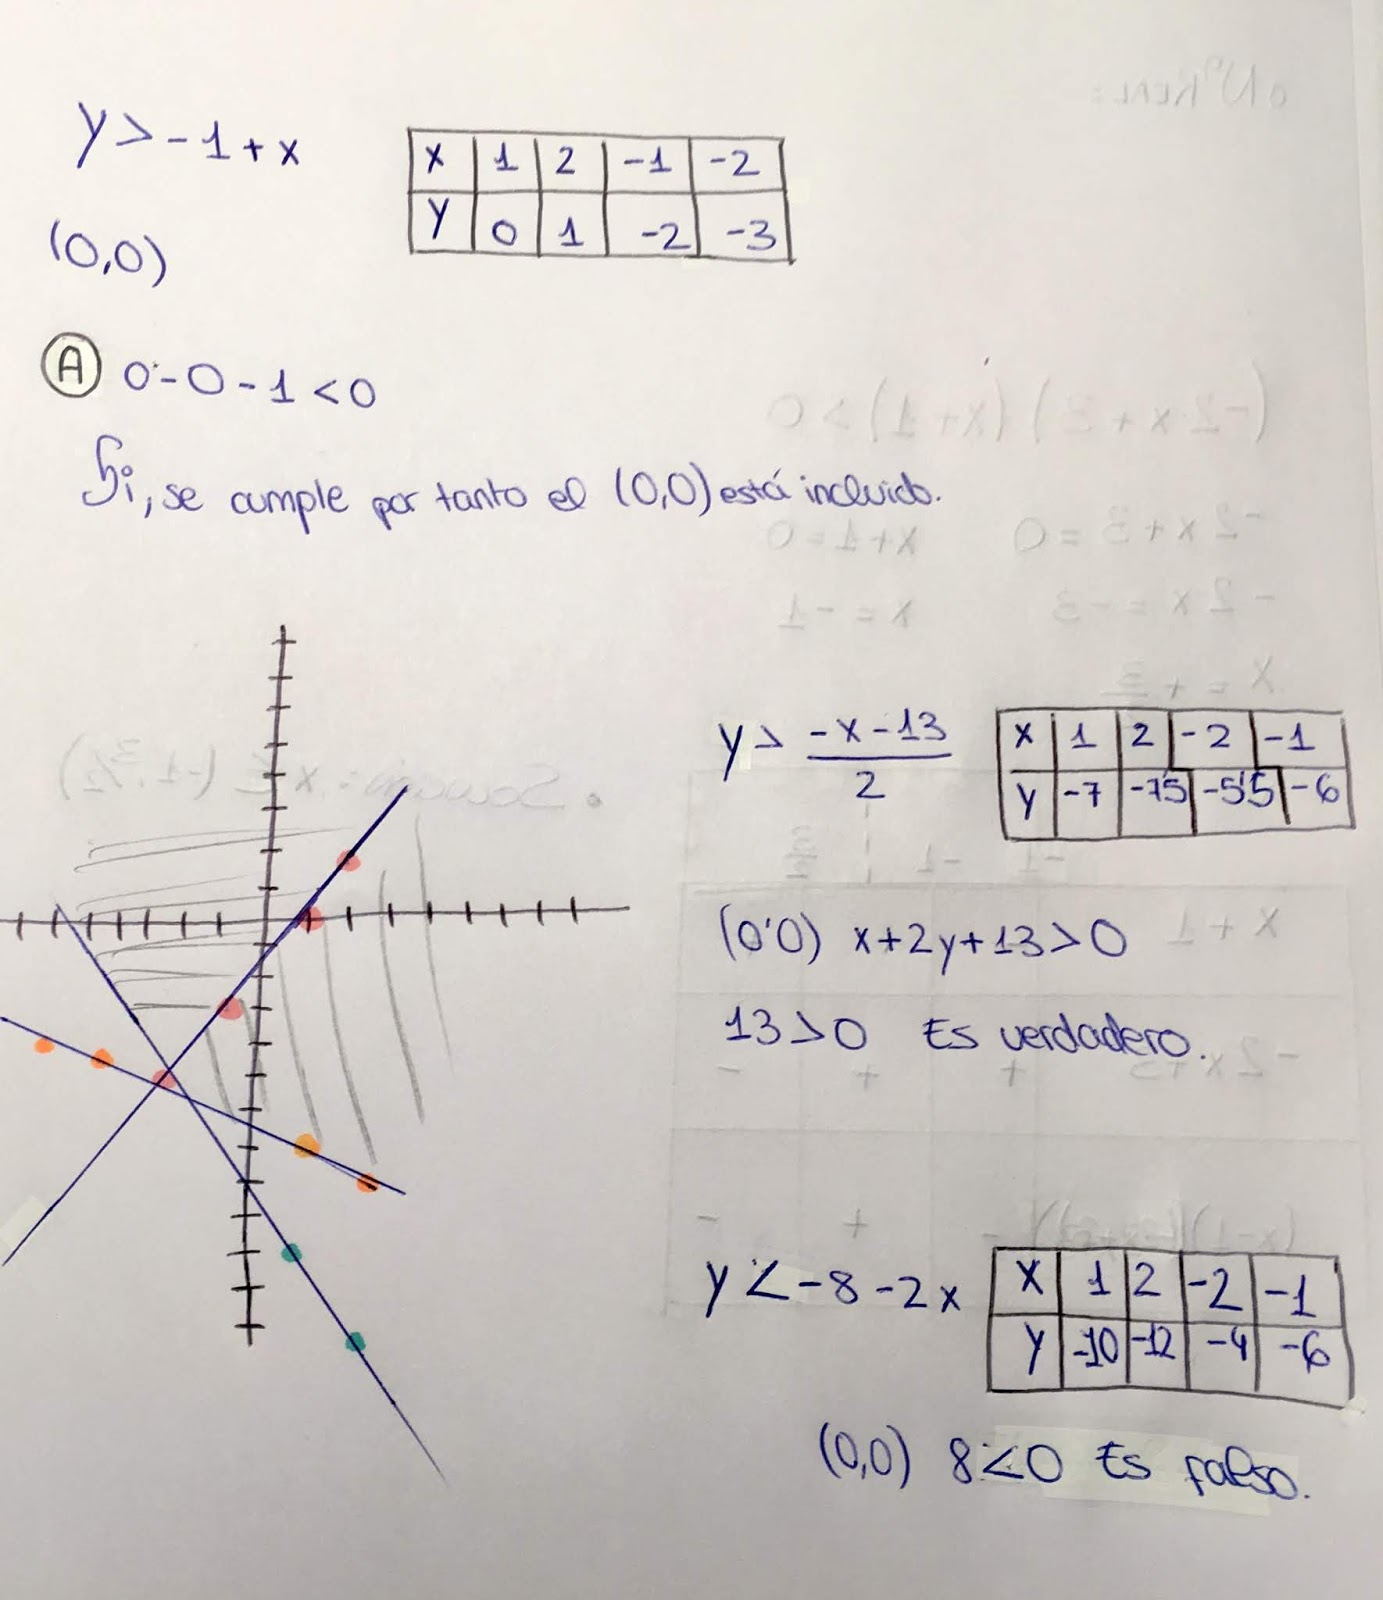 y > -1 + x
x 1 2 -1 -2
y 0 1 -2 -3
(0,0)
A 0 - 0 - 1 < 0
Si, se cumple por tanto el (0,0) está incluido.
y > (-x - 13)/2
x 1 2 -2 -1
y -7 -7'5 -5'5 -6
(0'0) x + 2y + 13 > 0
13 > 0 Es verdadero.
y < -8 - 2x
x 1 2 -2 -1
y -10 -12 -4 -6
(0,0) 8 < 0 Es falso.